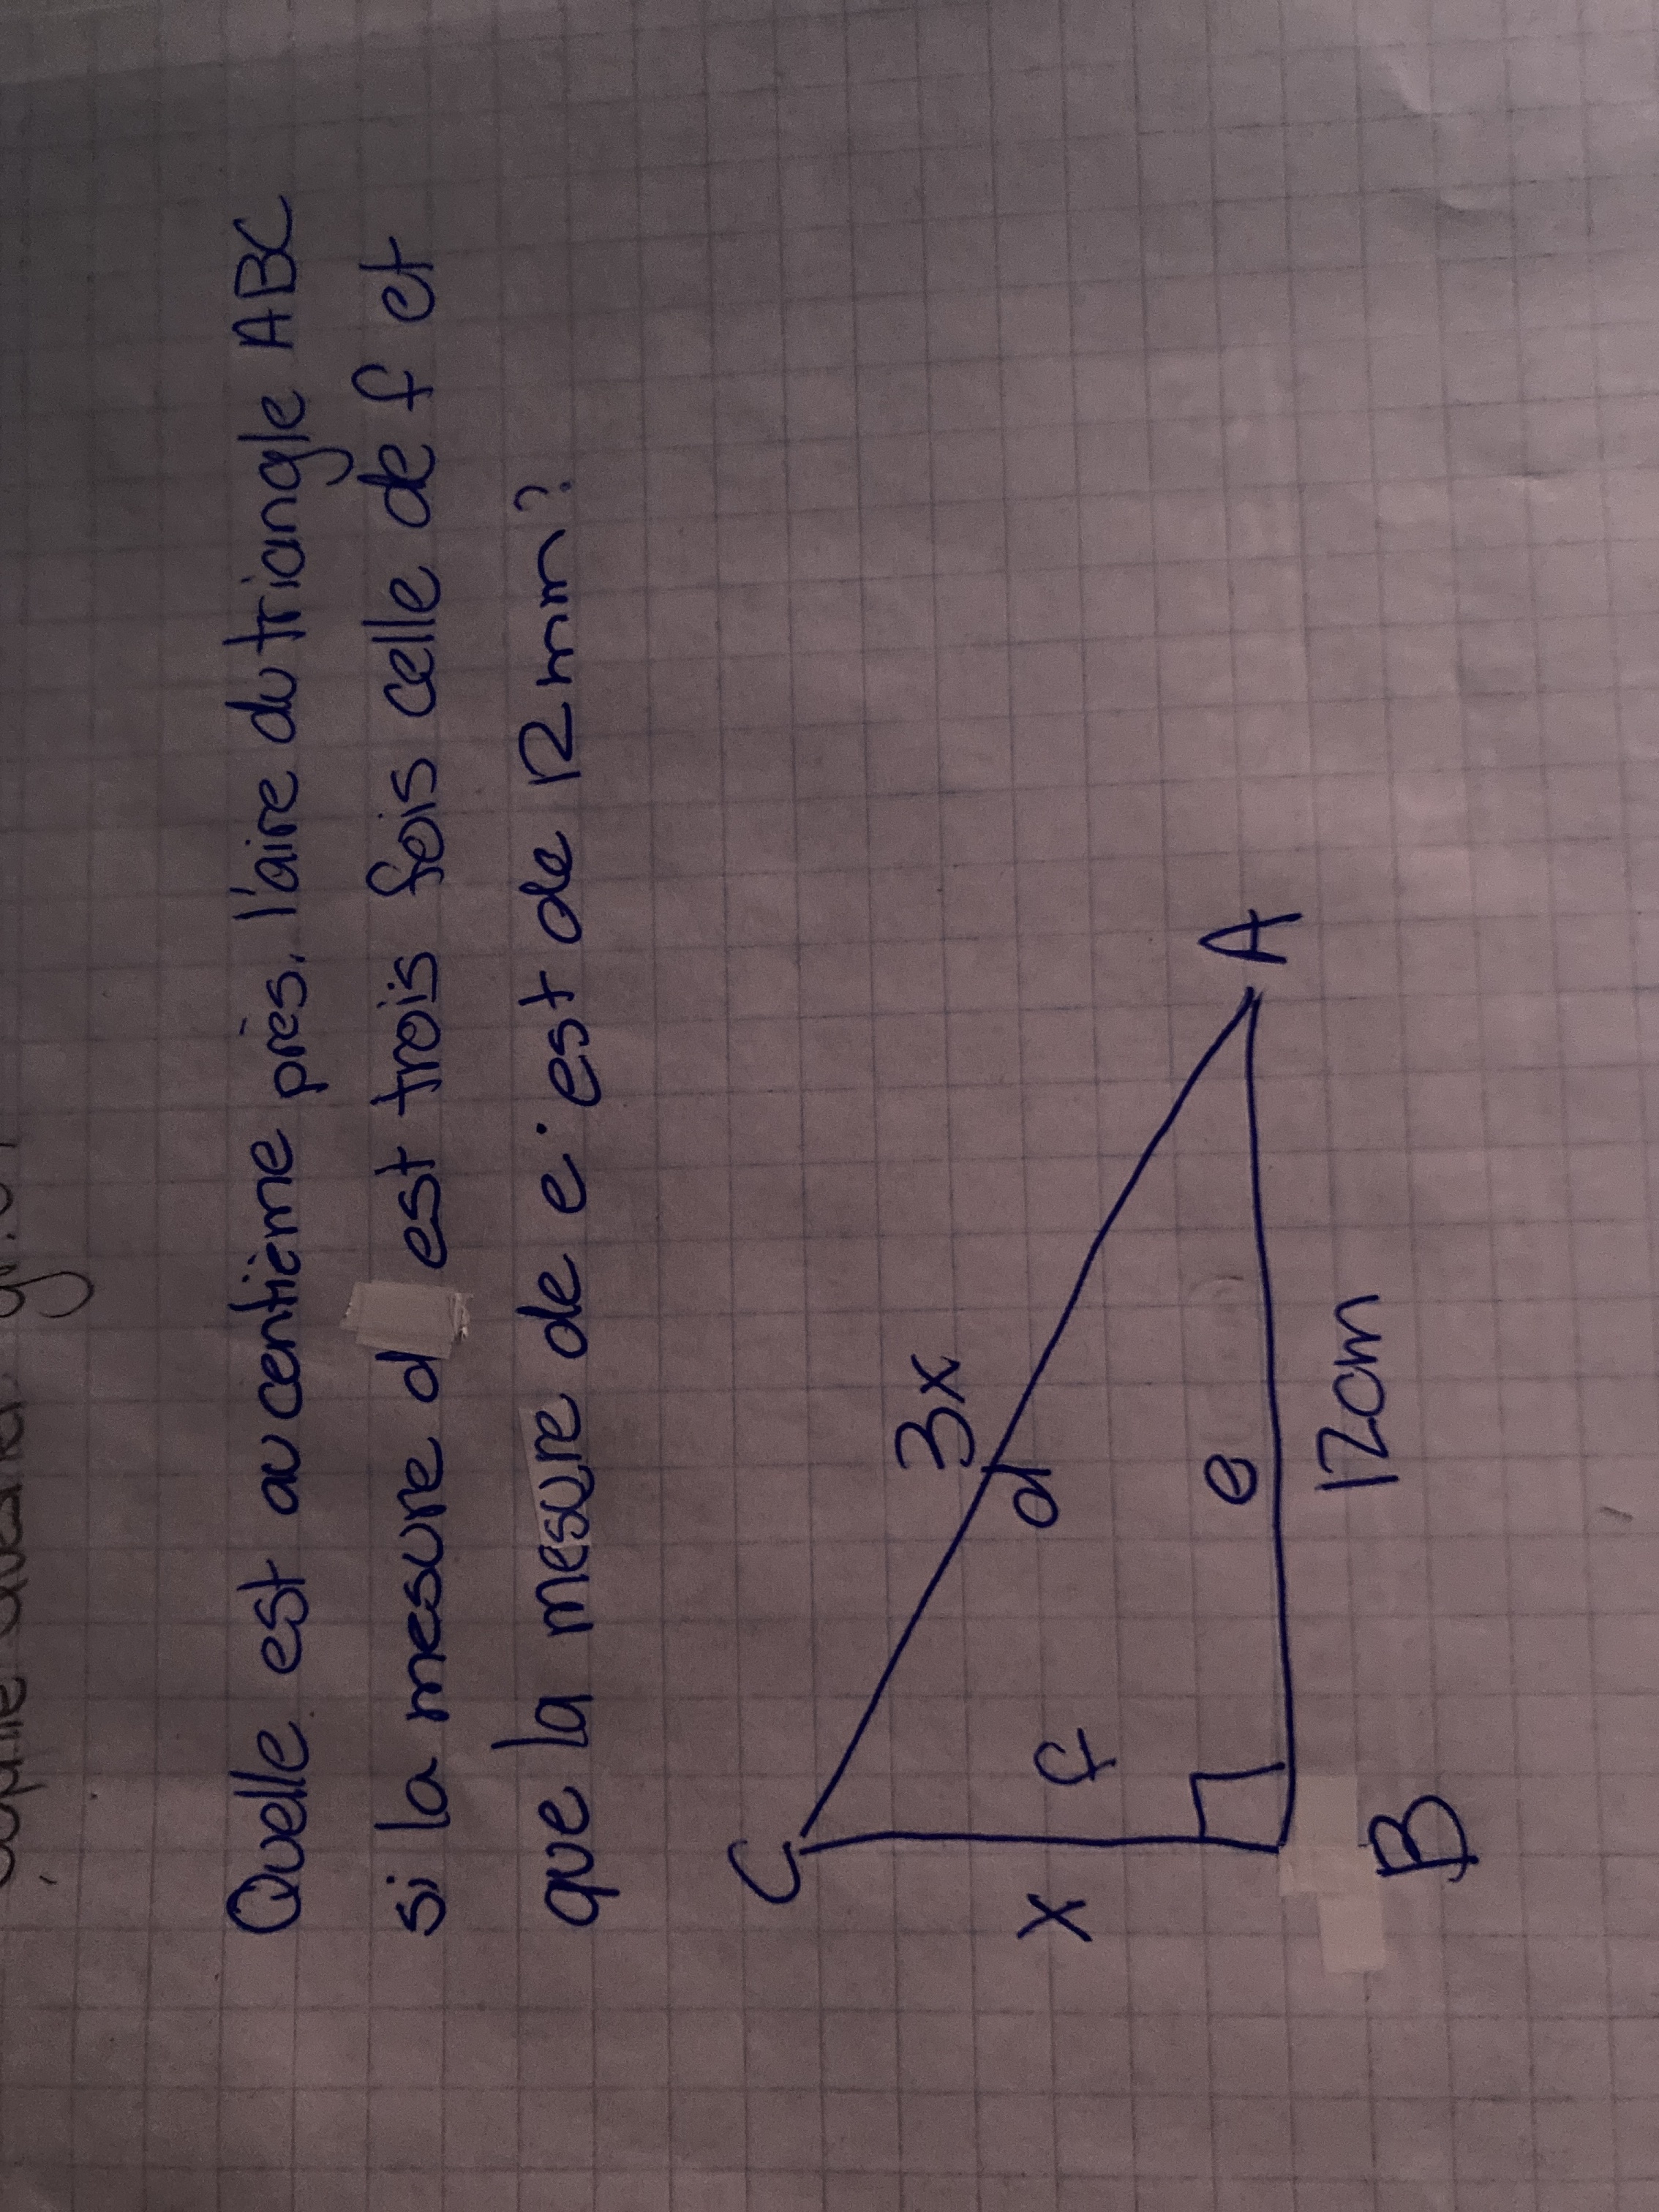 Quelle est au centième près, l'aire du triangle ABC
si la mesure d est trois fois celle de f et
que la mesure de e est de 12 mm?
C
3x
d
A
x
f
e
B
12cm